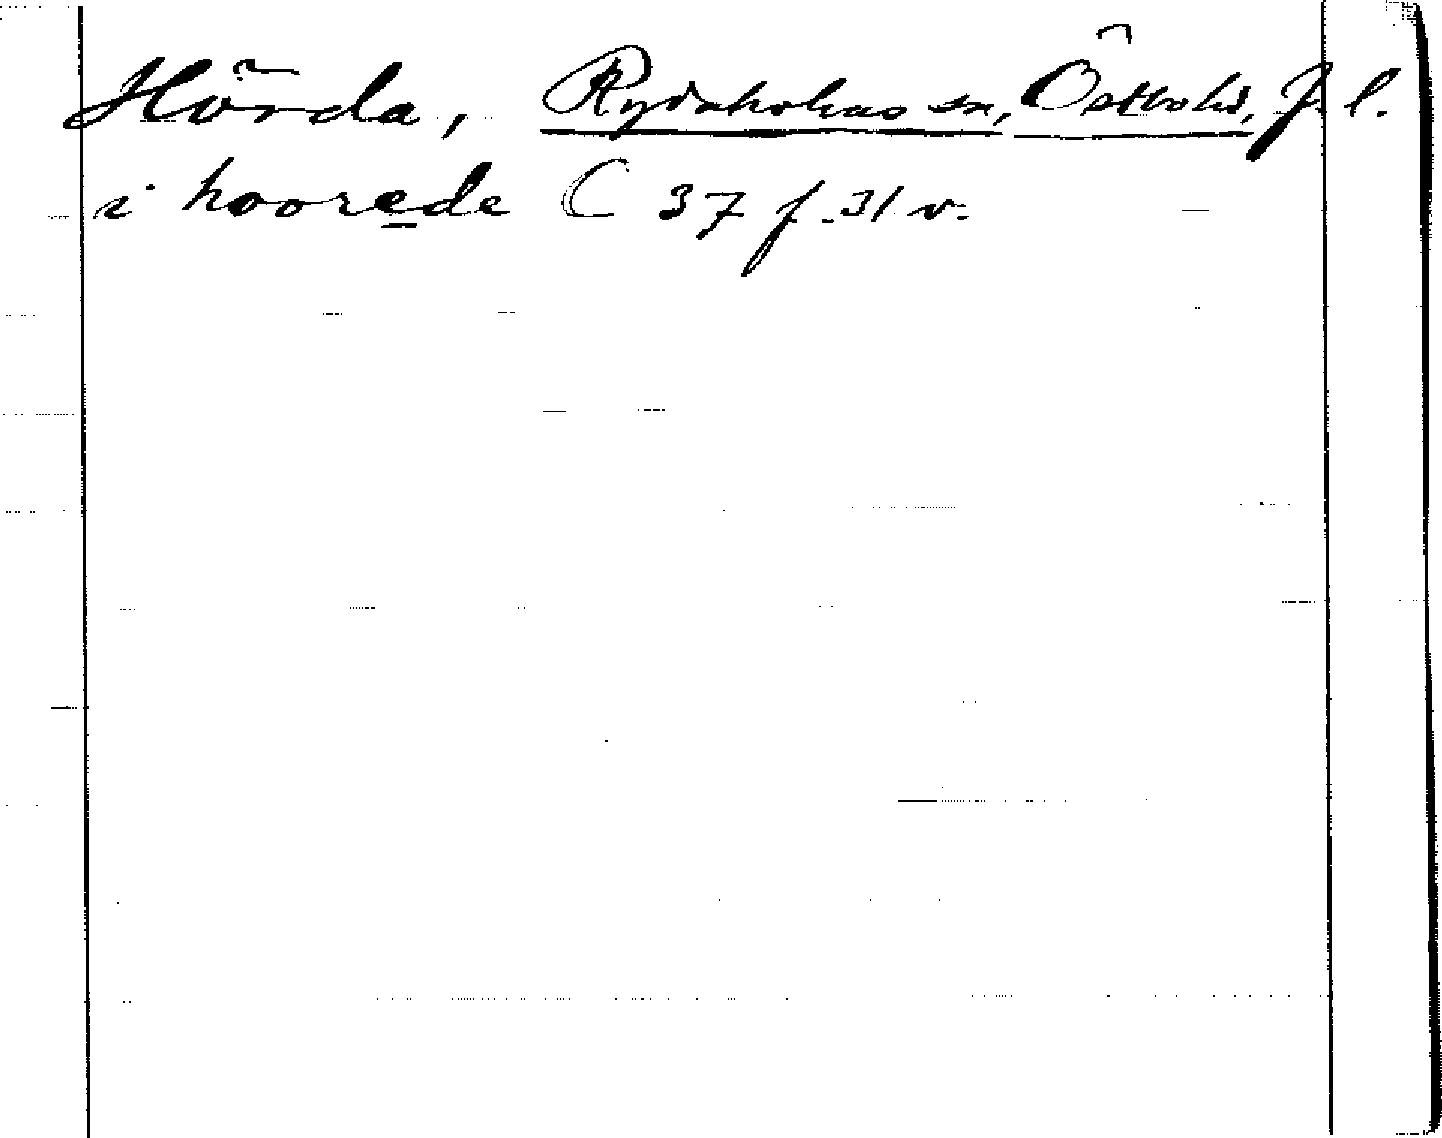 Hörda, Rydaholms sn, Östbo hd, J. l.
i hoorede C 37 f. 31 v.